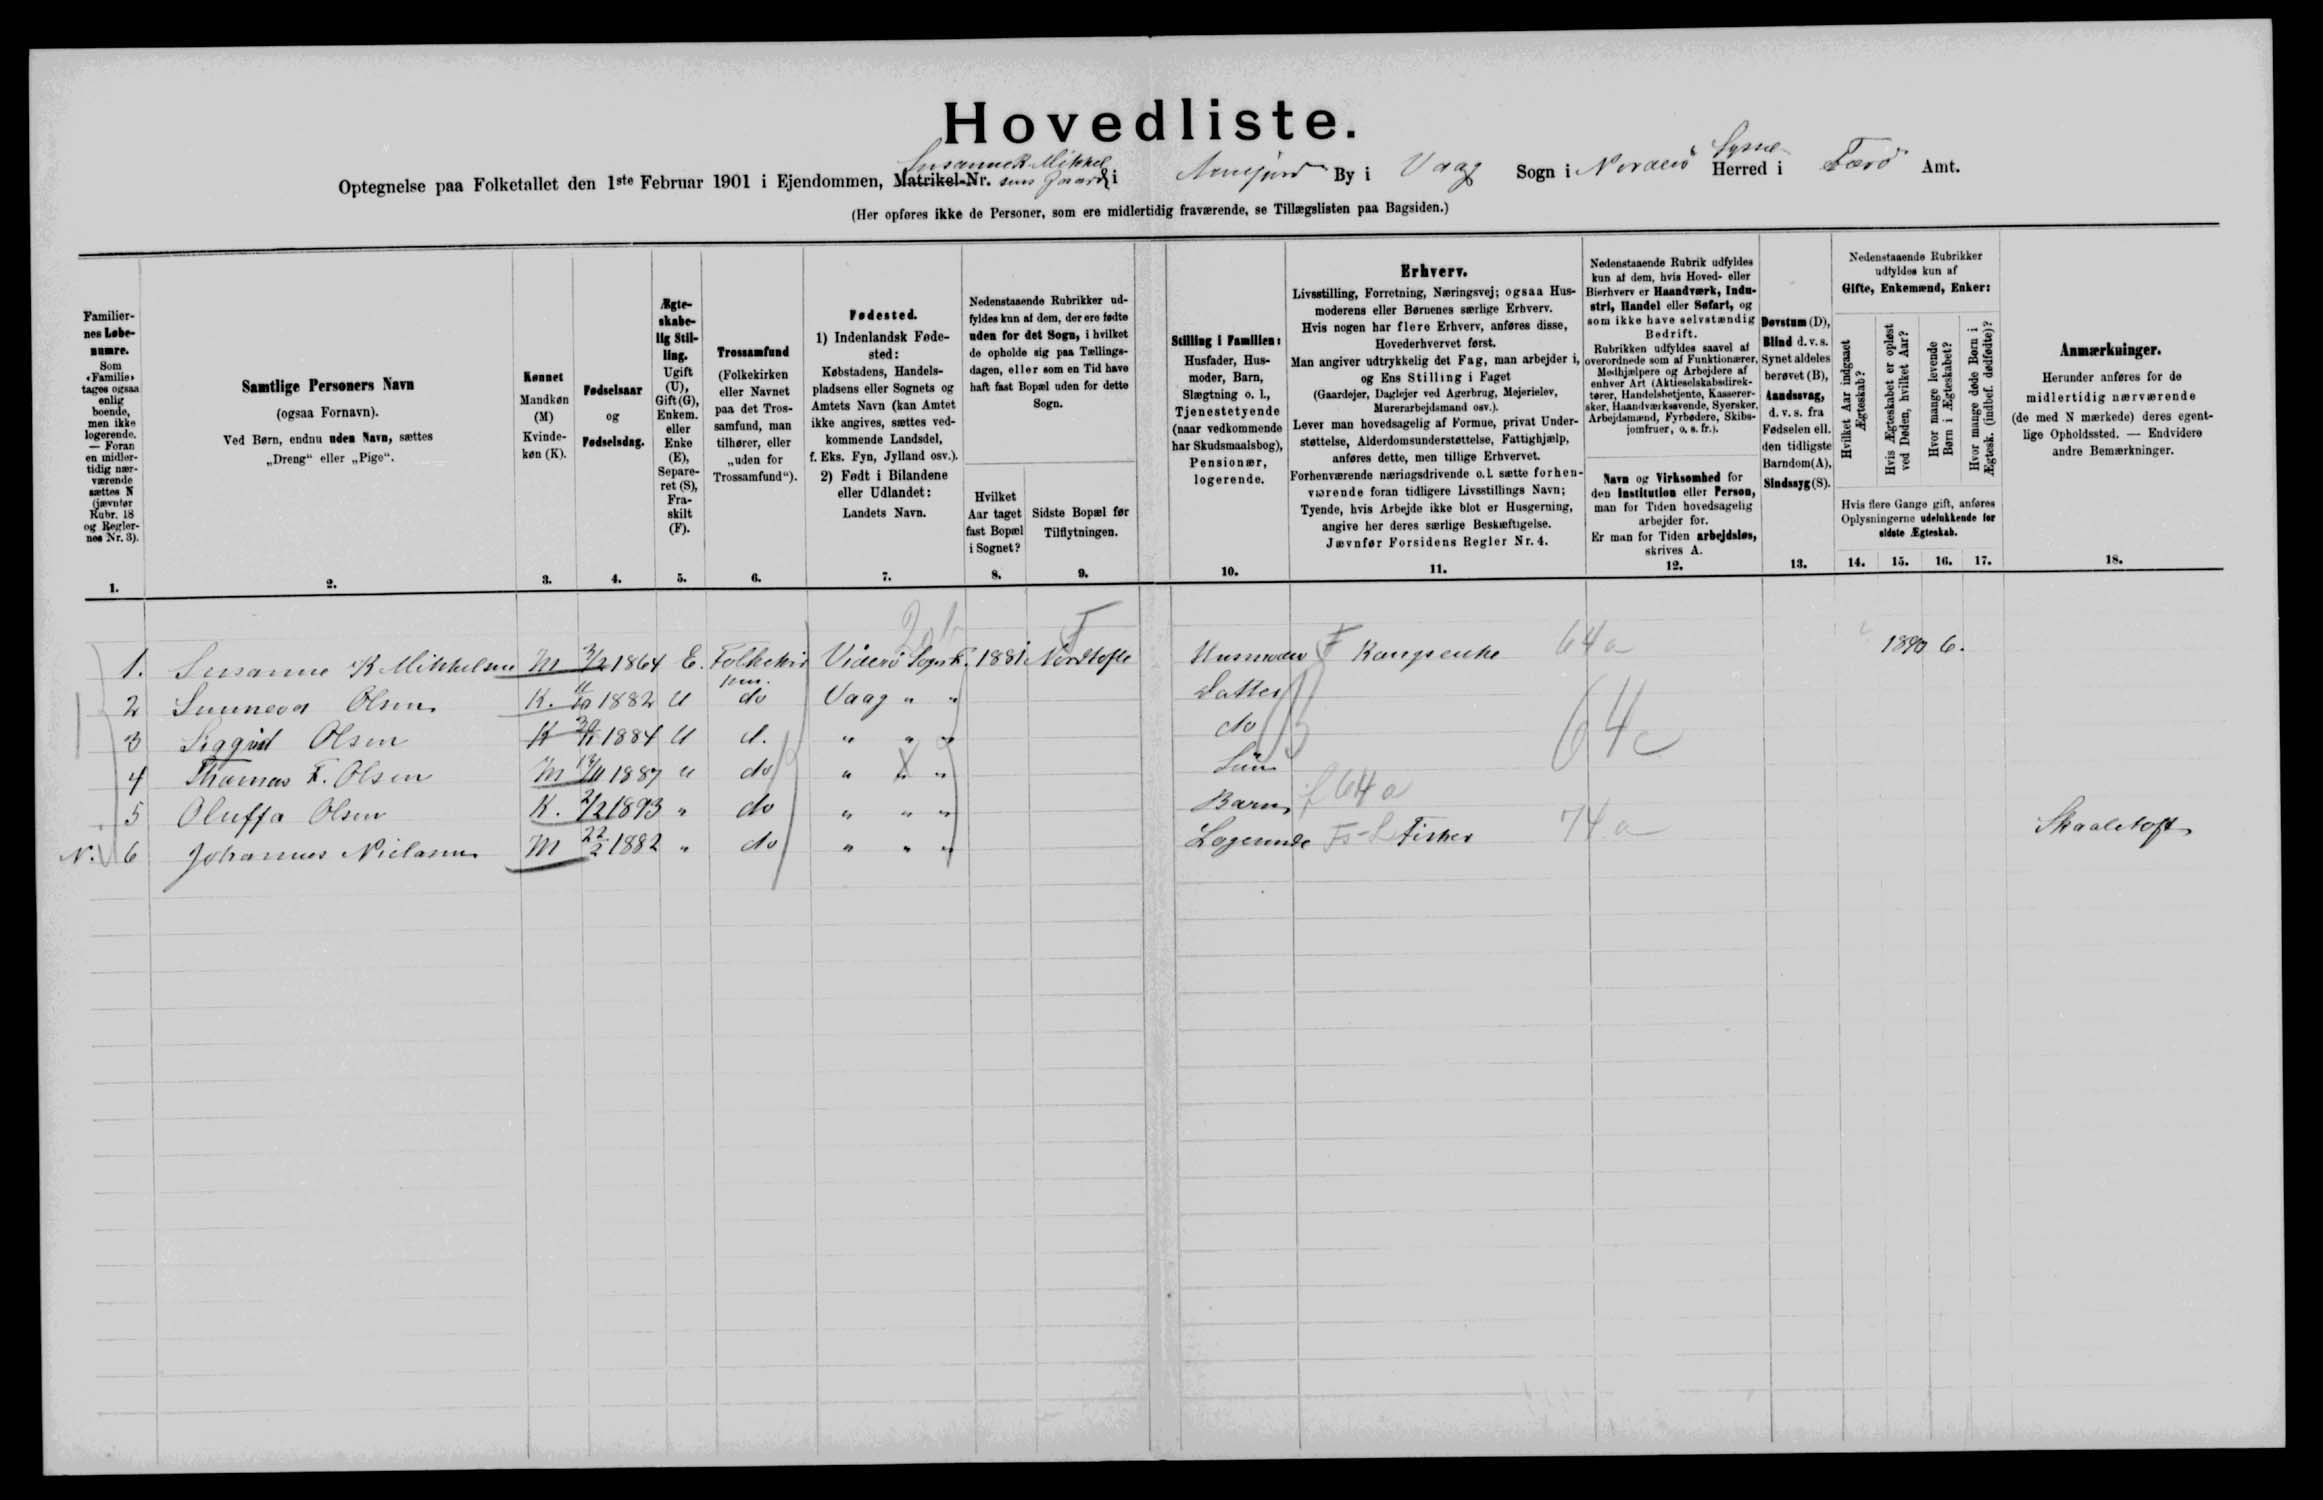 Hovedliste.
Susanne K Mikkel
Syssel
Optegnelse paa Folketallet den 1ste Februar 1901 i Ejendommen, Matrikel-Nr. sens Gaard i Annefjord By i Vaag Sogn i Norderø Herred i Færø Amt.
(Her opføres ikke de Personer, som ere midlertidig fraværende, se Tillægslisten paa Bagsiden.)
Familier-
nes Løbe-
numre.
Som
«Familie»
tages ogsaa
enlig
boende,
men ikke
logerende.
— Foran
en midler-
tidig nær-
værende
sættes N
(jævnfør
Rubr. 18
og Regler-
nes Nr. 3).
1.
Samtlige Personers Navn
(ogsaa Fornavn).
Ved Børn, endnu uden Navn, sættes
„Dreng“ eller „Pige“.
2.
Kønnet
Mandkøn
(M)
Kvinde-
køn (K).
3.
Fødselsaar
og
Fødselsdag.
4.
Ægte-
skabe-
lig Stil-
ling.
Ugift
(U),
Gift (G),
Enkem.
eller
Enke
(E),
Separe-
ret (S),
Fra-
skilt
(F).
5.
Trossamfund
(Folkekirken
eller Navnet
paa det Tros-
samfund, man
tilhører, eller
„uden for
Trossamfund“).
6.
Fødested.
1) Indenlandsk Føde-
sted:
Købstadens, Handels-
pladsens eller Sognets og
Amtets Navn (kan Amtet
ikke angives, sættes ved-
kommende Landsdel,
f. Eks. Fyn, Jylland osv.).
2) Født i Bilandene
eller Udlandet:
Landets Navn.
7.
Nedenstaaende Rubrikker ud-
fyldes kun af dem, der ere fødte
uden for det Sogn, i hvilket
de opholde sig paa Tællings-
dagen, eller som en Tid have
haft fast Bopæl uden for dette
Sogn.
Hvilket
Aar taget
fast Bopæl
i Sognet?
8.
Sidste Bopæl før
Tilflytningen.
9.
Stilling i Familien:
Husfader, Hus-
moder, Barn,
Slægtning o. l.,
Tjenestetyende
(naar vedkommende
har Skudsmaalsbog),
Pensionær,
logerende.
10.
Erhverv.
Livsstilling, Forretning, Næringsvej; ogsaa Hus-
moderens eller Børnenes særlige Erhverv.
Hvis nogen har flere Erhverv, anføres disse,
Hovederhvervet først.
Man angiver udtrykkelig det Fag, man arbejder i,
og Ens Stilling i Faget
(Gaardejer, Daglejer ved Agerbrug, Mejerielev,
Murerarbejdsmand osv.).
Lever man hovedsagelig af Formue, privat Under-
støttelse, Alderdomsunderstøttelse, Fattighjælp,
anføres dette, men tillige Erhvervet.
Forhenværende næringsdrivende o. l. sætte forhen-
værende foran tidligere Livsstillings Navn;
Tyende, hvis Arbejde ikke blot er Husgerning,
angive her deres særlige Beskæftigelse.
Jævnfør Forsidens Regler Nr. 4.
11.
Nedenstaaende Rubrik udfyldes
kun af dem, hvis Hoved- eller
Bierhverv er Haandværk, Indu-
stri, Handel eller Søfart, og
som ikke have selvstændig
Bedrift.
Rubrikken udfyldes saavel af
overordnede som af Funktionærer,
Medhjælpere og Arbejdere af
enhver Art (Aktieselskabsdirek-
tører, Handelsbetjente, Kasserer-
sker, Haandværkssvende, Syersker,
Arbejdsmænd, Fyrbødere, Skibs-
jomfruer, o. s. fr.).
Navn og Virksomhed for
den Institution eller Person,
man for Tiden hovedsagelig
arbejder for.
Er man for Tiden arbejdsløs,
skrives A.
12.
Døvstum (D),
Blind d. v. s.
Synet aldeles
berøvet (B),
Aandssvag,
d. v. s. fra
Fødselen ell.
den tidligste
Barndom(A),
Sindssyg(S).
13.
Nedenstaaende Rubrikker
udfyldes kun af
Gifte, Enkemænd, Enker:
Hvilket Aar indgaaet
Ægteskab?
Hvis Ægteskabet er opløst
ved Døden, hvilket Aar?
Hvor mange levende
Børn i Ægteskabet?
Hvor mange døde Børn i
Ægtesk. (indbef. dødfødte)?
Hvis flere Gange gift, anføres
Oplysningerne udelukkende for
sidste Ægteskab.
14. 15. 16. 17.
Anmærkninger.
Herunder anføres for de
midlertidig nærværende
(de med N mærkede) deres egent-
lige Opholdssted. — Endvidere
andre Bemærkninger.
18.
1. Susanne K Mikkelsen M 3/2 1864 E. Folkekir Viderø Sogn F. 1881 Nordtofte Husmoder F Kongsenke 64 a 1890 6.
ken.
2 Sunneva Olsen K. 1882 U do Vaag " " Datter
3 Siggrid Olsen K 1884 U d. " " " do 64 c
4 Thomas F. Olsen M 1887 U do " " " Søn
5 Oluffa Olsen K. 2/2 1893 " do " " " Barn f 64 a
N. 6 Johannes Nielsen M 22/2 1882 " do " " " Logerende Fs-L Fisker 74 a Skaaletofte